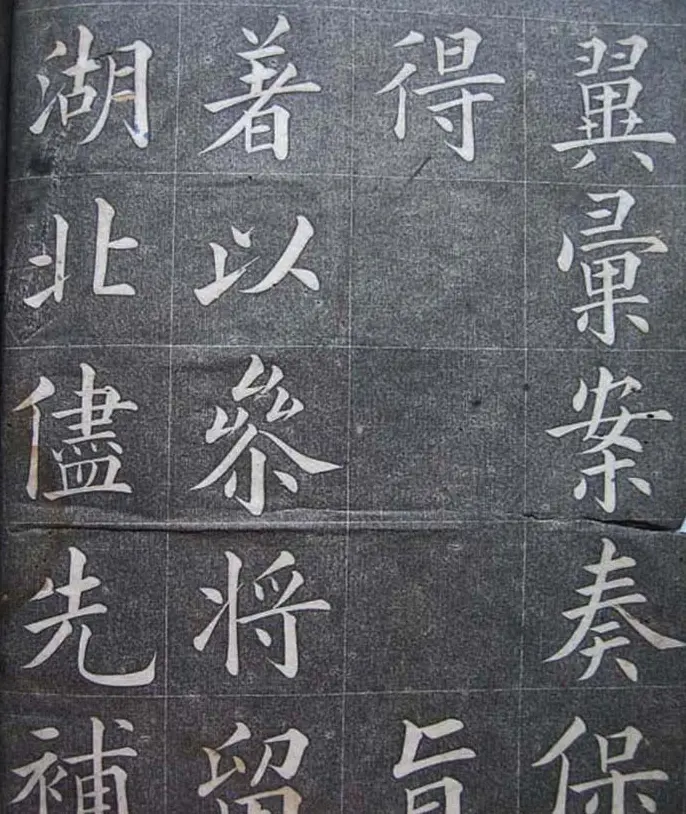 翼彙案奏保
得旨
著以叅将留
湖北儘先補